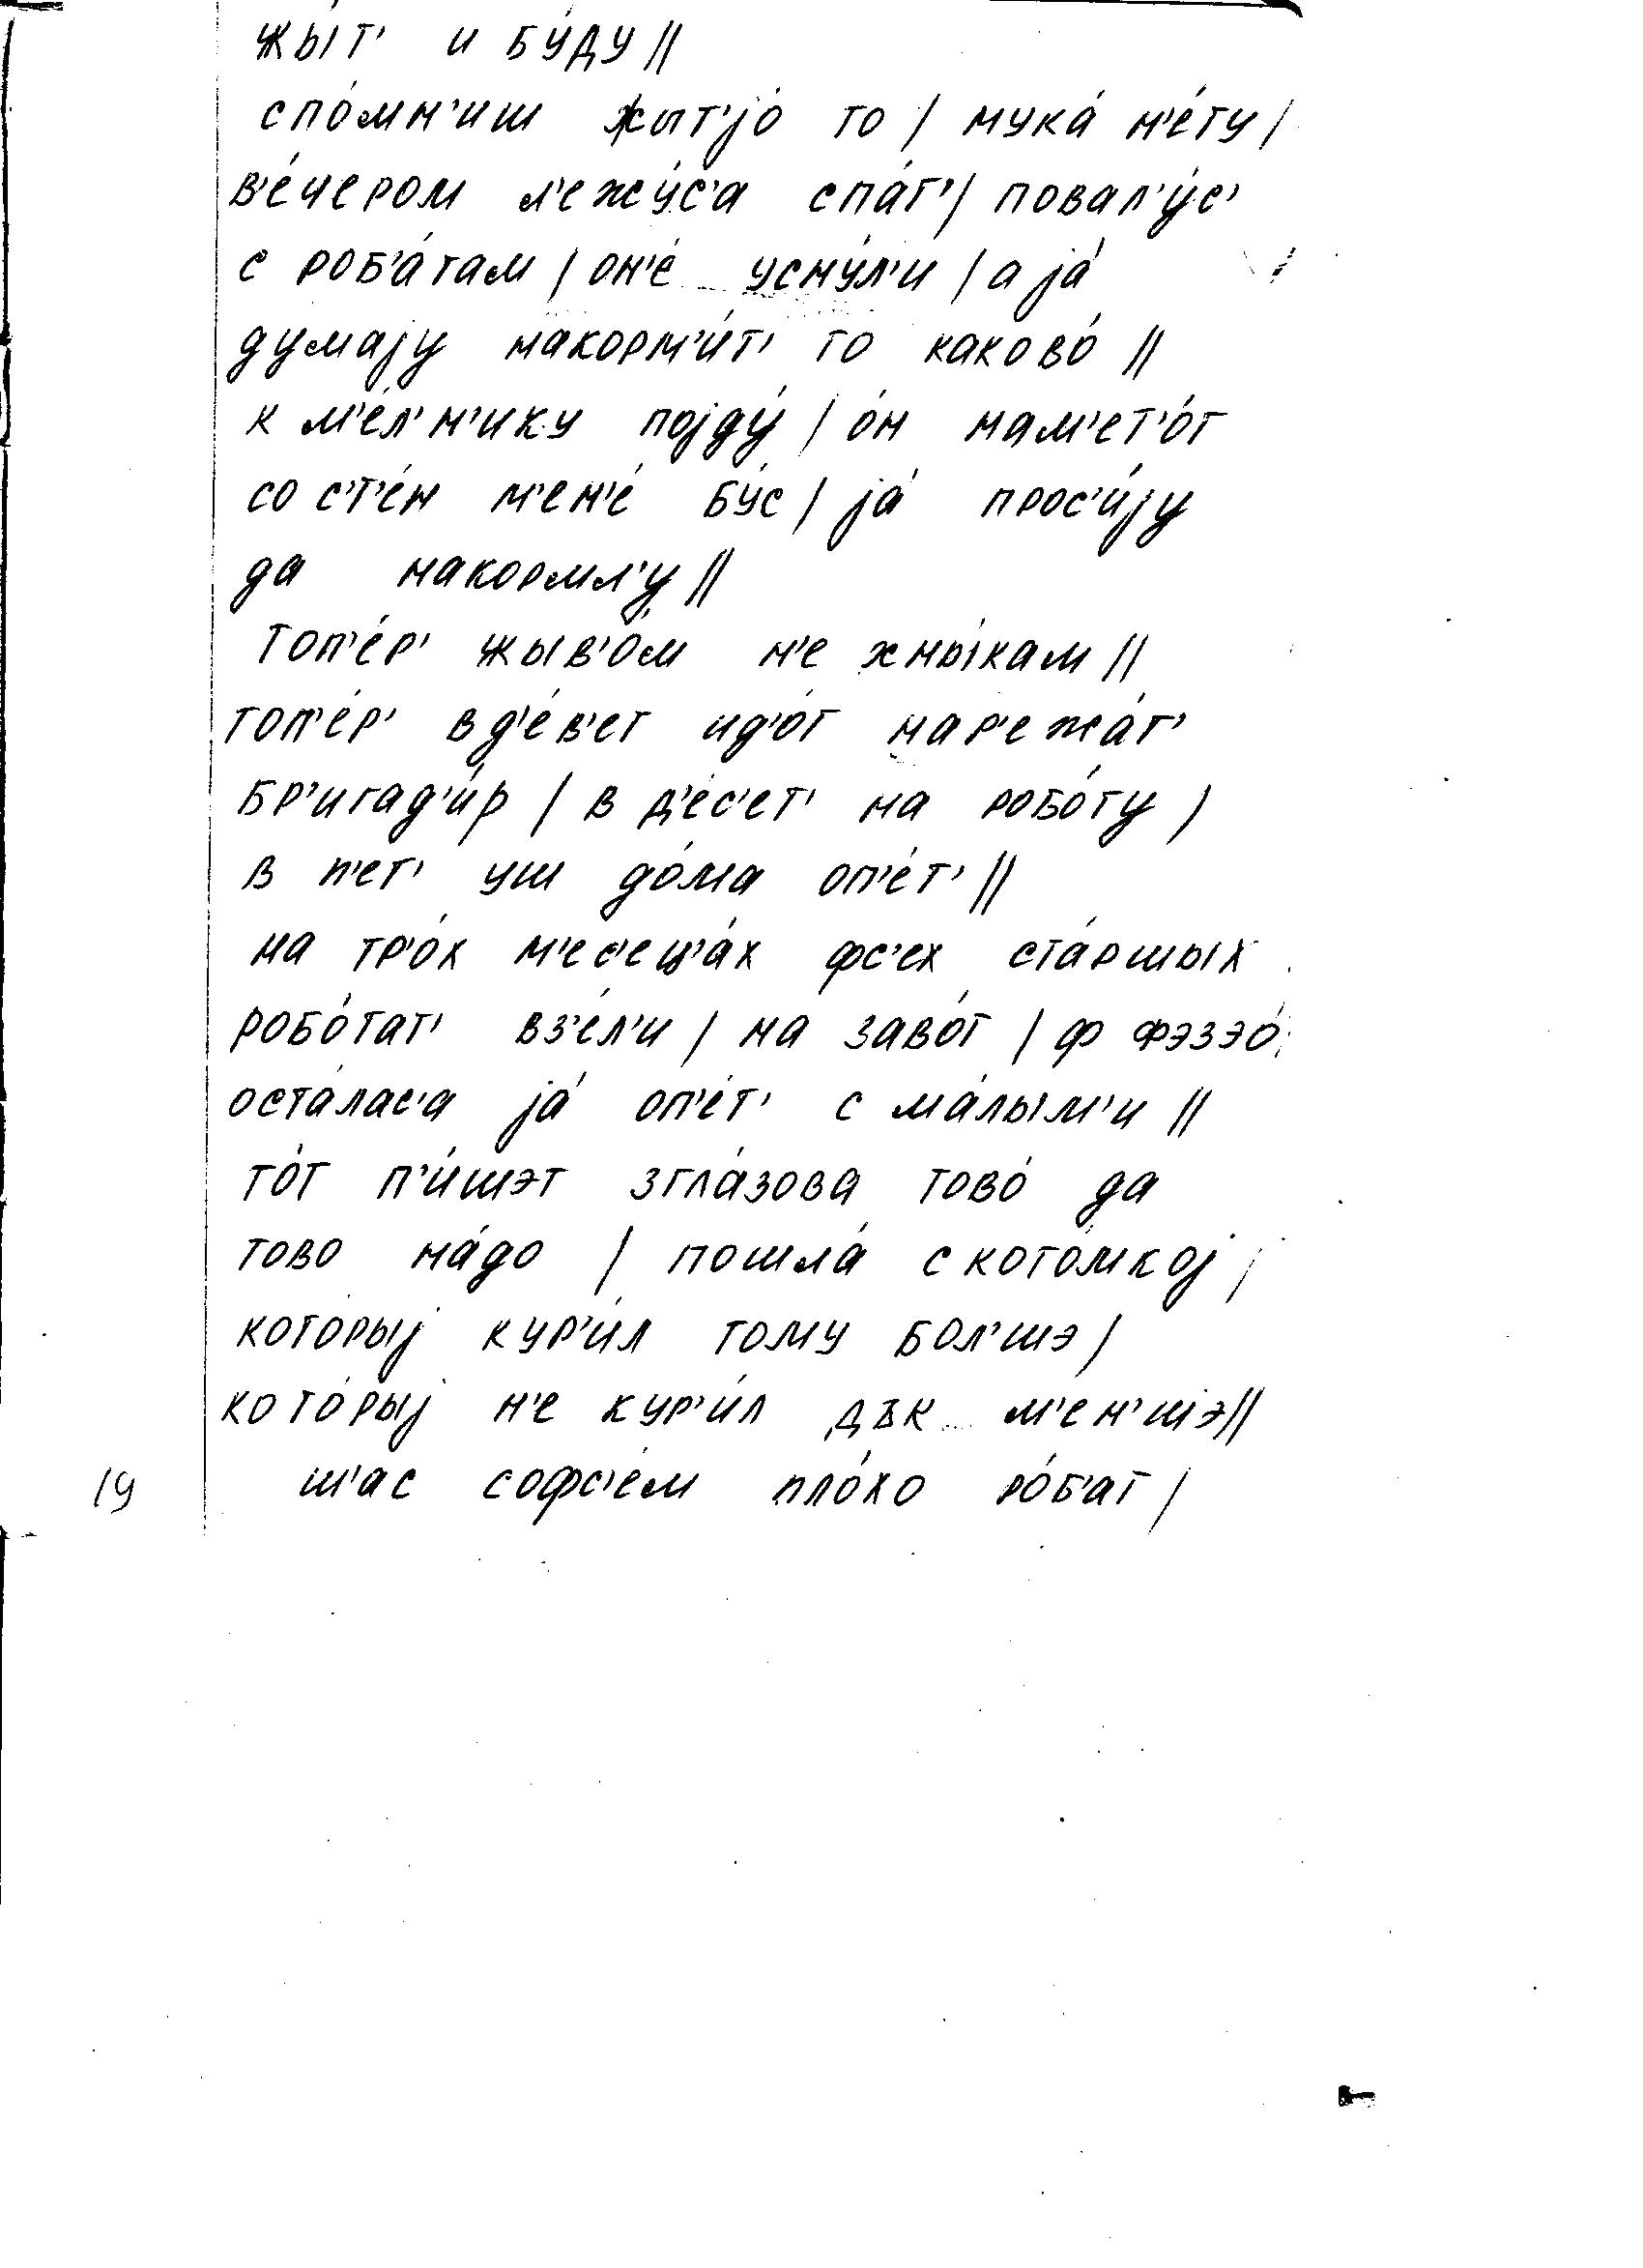 жы́т' и бу́ду //
спо́мн'иш жыт'jо́ то / мука́ н'е́ту /
в'е́чером л'ежу́с'а спа́т' / повал'у́с'
с роб'а́там / он'е́ усну́л'и / а jа́
думаjу накорм'и́т' то каково́ //
к м'е́л'н'ику поjду́ / о́н нам'ет'о́т
со с'т'е́н м'ен'е́ бу́с / jа́ прос'и́jу
да накормл'у́ //
топ'е́р' жыв'о́м н'е хны́кам //
топ'е́р' в д'е́в'ет ид'о́т нар'ежа́т'
бр'игад'и́р / в д'е́с'ет' на робо́ту /
в п'ет' уш до́ма оп'е́т' //
на тр'о́х м'ес'ец'а́х фс'ех ста́ршых
робо́тат' вз'е́л'и / на заво́т / ф фэзэо́
оста́лас'а jа́ оп'е́т' с ма́лым'и //
то́т п'и́шэт з гла́зова тово́ да
тово на́до / пошла́ с кото́мкоj /
кото́рыj кур'и́л тому бол'шэ /
кото́рыj н'е кур'и́л дък м'ен'шэ //
19 ш'ас софс'е́м пло́хо ро́б'ат /